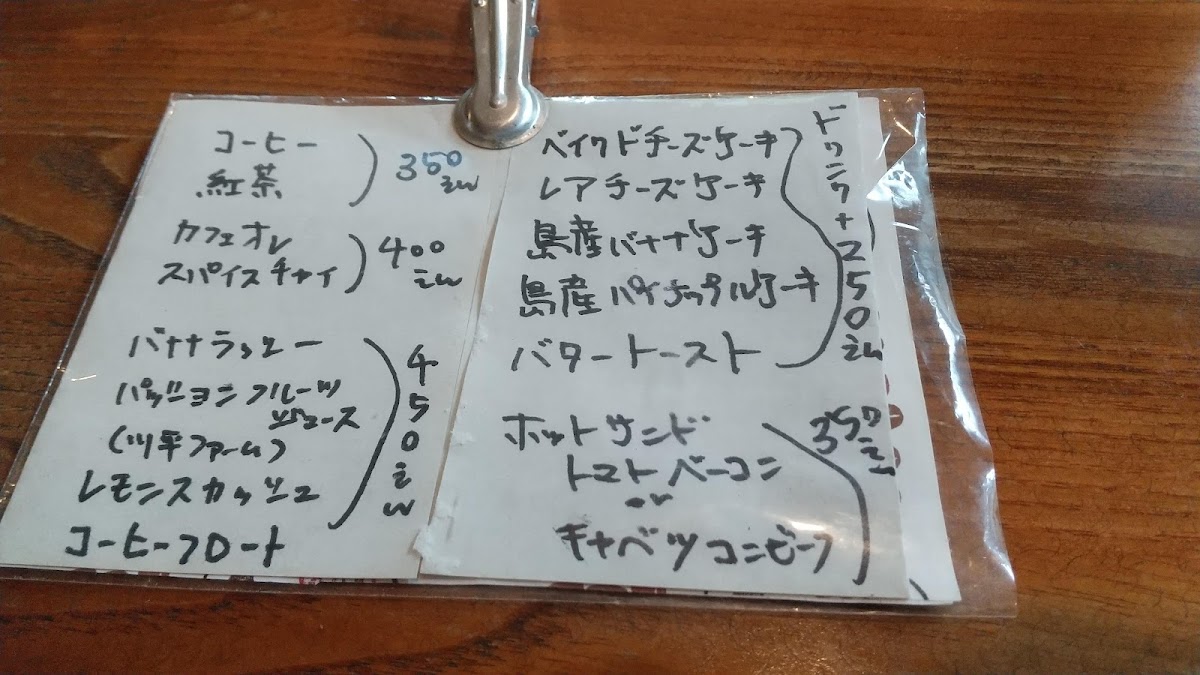 コーヒー
紅茶
350
えん
カフェオレ
スパイスチャイ
400
えん
バナナラッシー
パッションフルーツ
ジュース
(川平ファーム)
レモンスカッシュ
コーヒーフロート
450えん
ベイクドチーズケーキ
レアチーズケーキ
島産バナナケーキ
島産パイナップルケーキ
バタートースト
ドリンク+250えん
ホットサンド
トマトベーコン
or
キャベツコンビーフ
350
えん